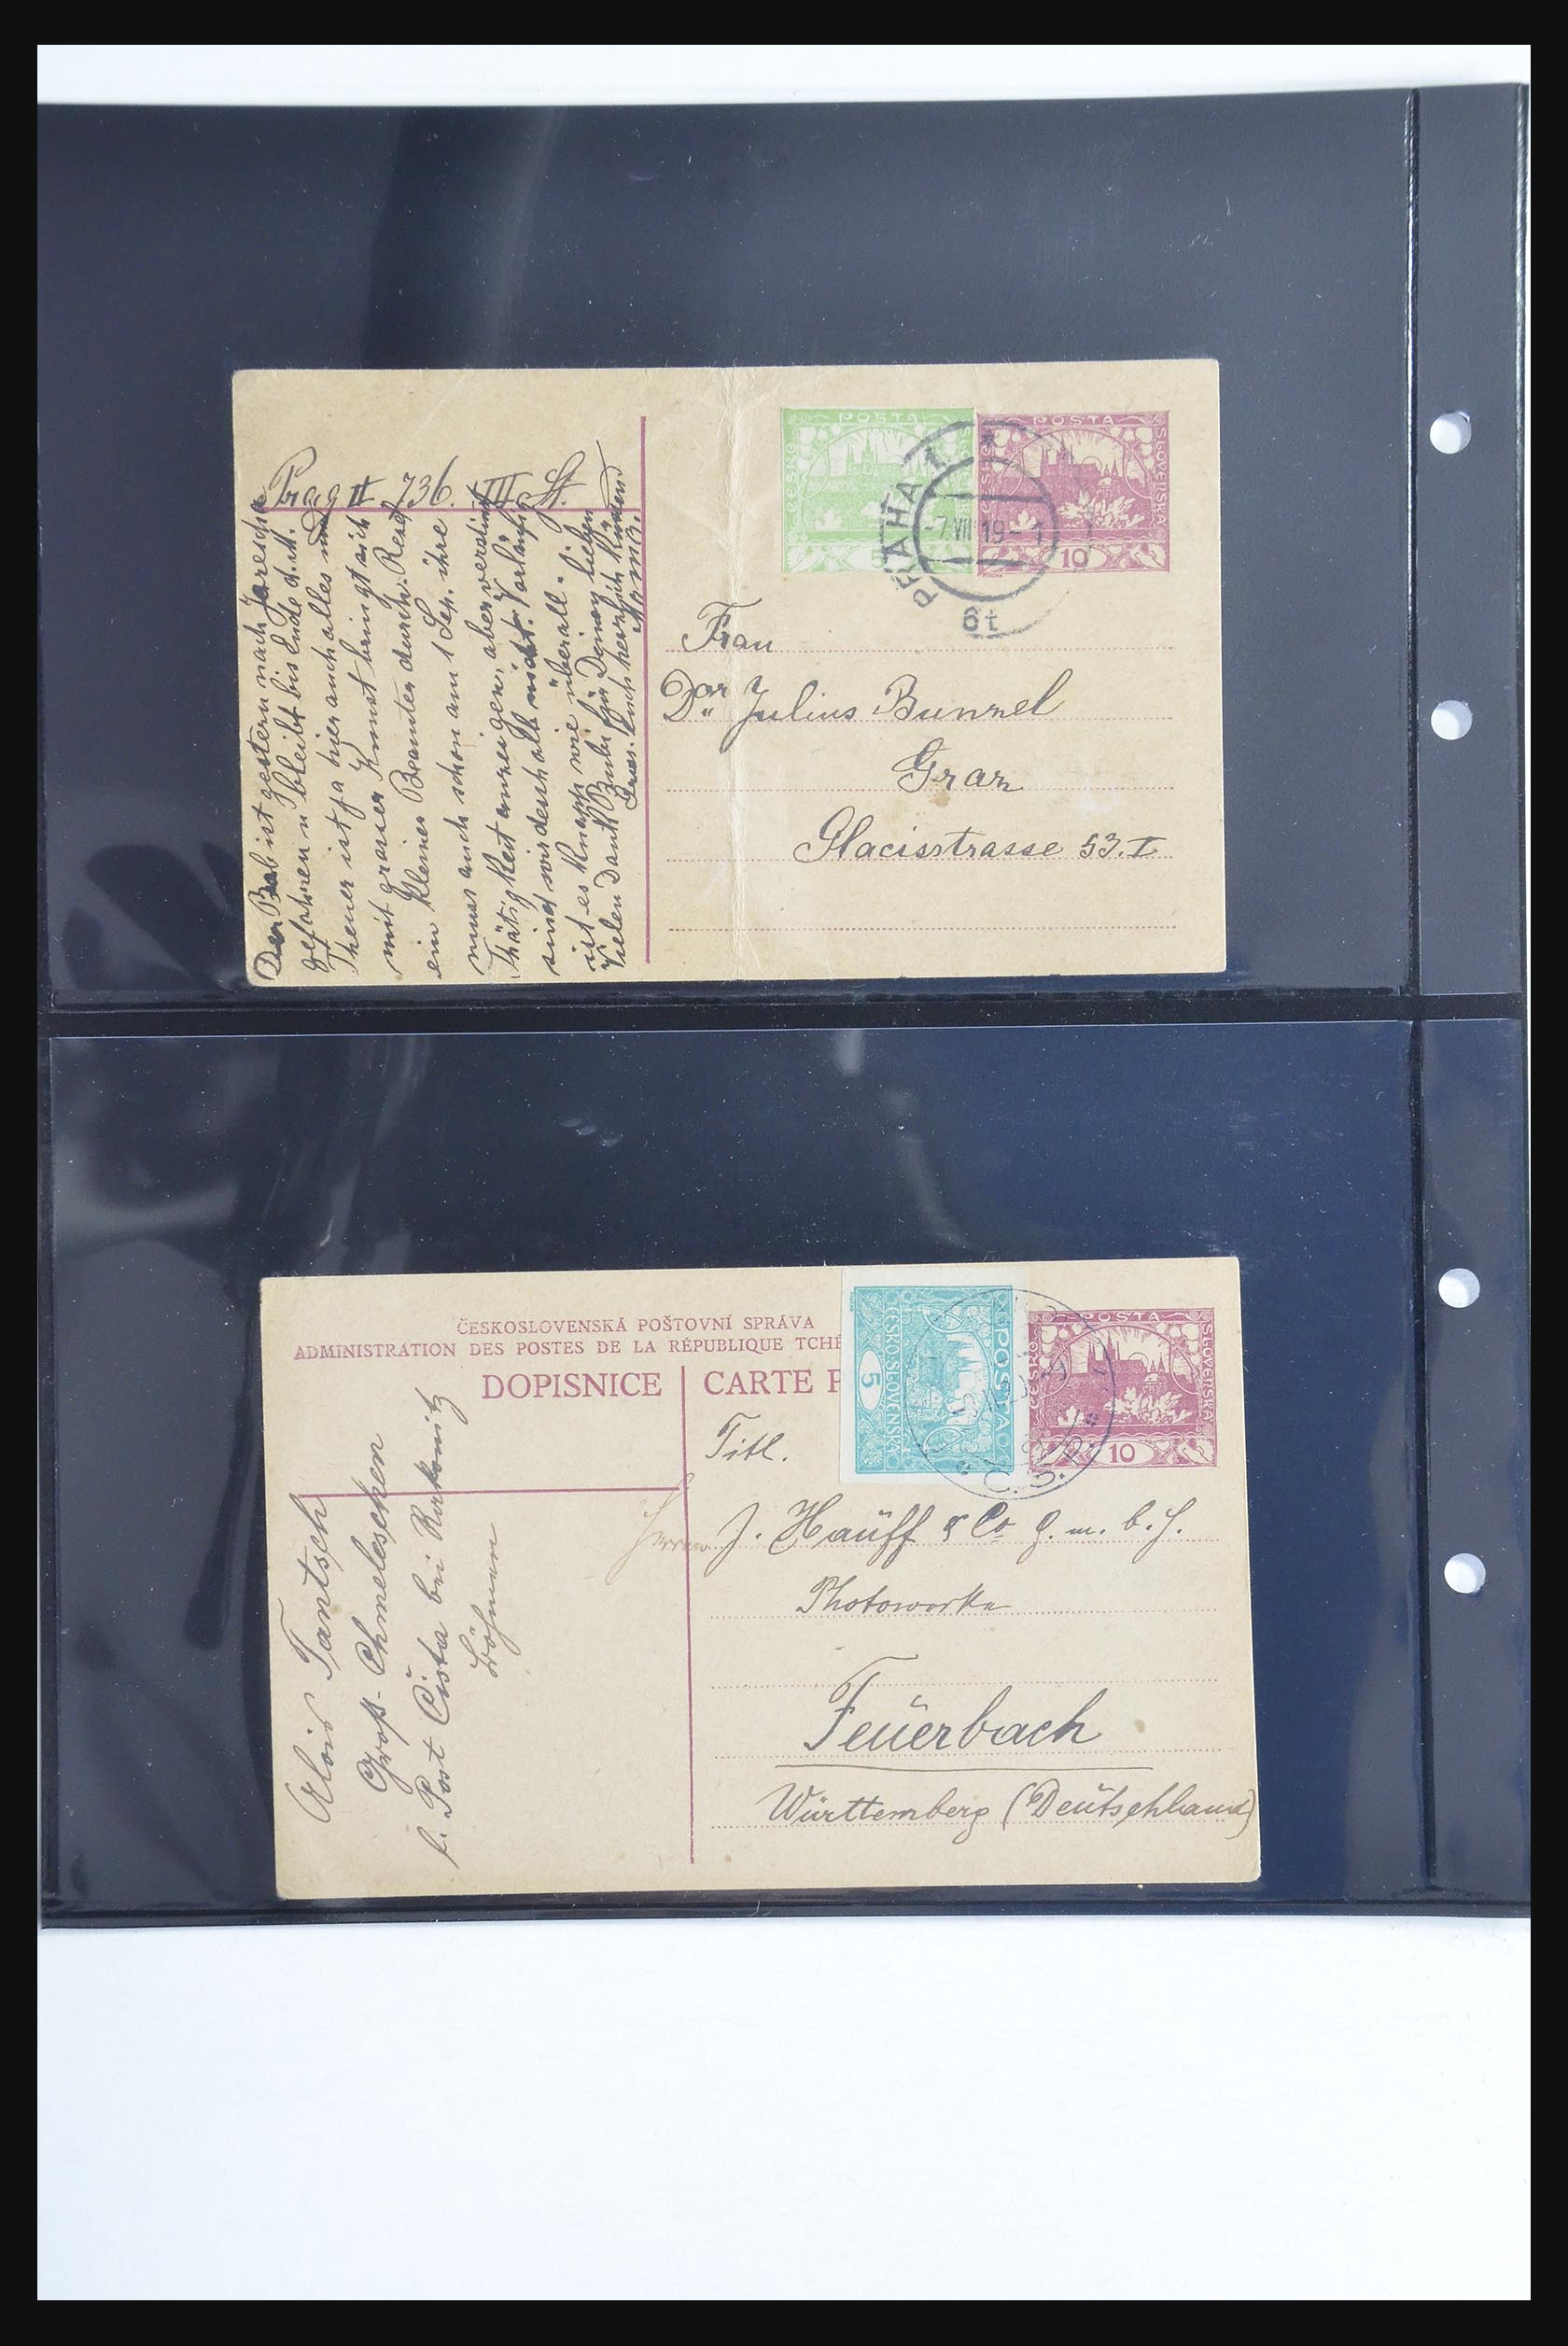 POSTA
ČESKO
SLOVENSKÁ
5
POSTA
ČESKO
SLOVENSKÁ
10
PRAHA 1
-7.VIII 19-1
6t
Prag II 736. III St.
Der Bub ist gestern nach
gefahren u bleibt bis Ende d. M.
Theuer ist ja hier auch alles und
mit grauer Kunst bringt sich
ein kleiner Beamter durch.
muss auch schon am 1 Sep. ihre
Thätigkeit
sind wir desshalb nicht. Vorläufig
ist es knapp wie überall.
Vielen Dank Bubi für Deinen lieben
herzlich
Frau
Dor Julius Bunzel
Graz
Glacisstrasse 53. I
ČESKOSLOVENSKÁ POŠTOVNÍ SPRÁVA
ADMINISTRATION DES POSTES DE LA RÉPUBLIQUE TCHÉ
DOPISNICE
CARTE P
POSTA
ČESKO SLOVENSKÁ
5
POSTA
ČESKO
SLOVENSKÁ
10
Č.S.P.
Alois Tantsch
Groß-Chmeleschen
p. Post Čista bei Rakonitz
Böhmen
Titl.
Herren J. Hauff & Co G.m.b.H.
Photowerke
Feuerbach
Württemberg (Deutschland)